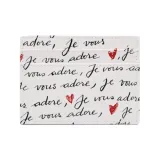 Je vous
adore, Je vous adore,
Je vous adore, Je
vous adore, Je vous
adore, Je vous adore,
vous adore, Je vous